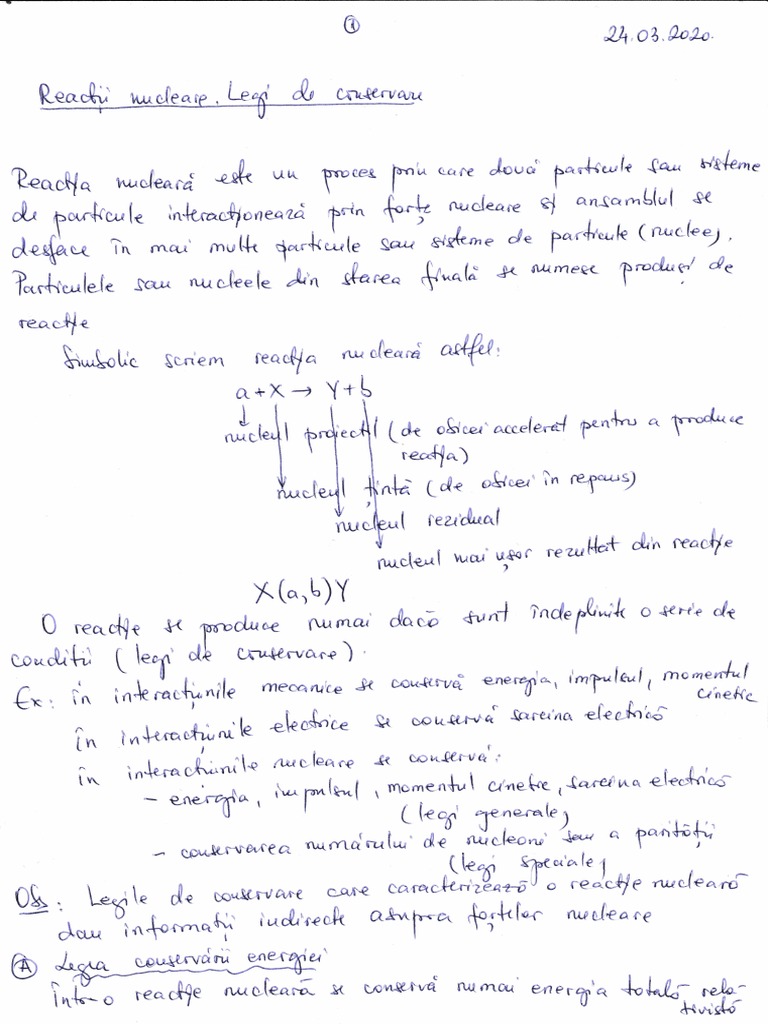 ①
24.03.2020.
Reacții nucleare. Legi de conservare
Reacția nucleară este un proces prin care două particule sau sisteme
de particule interacționează prin forțe nucleare și ansamblul se
desface în mai multe particule sau sisteme de particule (nuclee).
Particulele sau nucleele din starea finală se numesc produși de
reacție
Simbolic scriem reacția nucleară astfel:
a + X → Y + b
nucleul proiectil (de obicei accelerat pentru a produce
reacția)
nucleul țintă (de obicei în repaus)
nucleul rezidual
nucleul mai ușor rezultat din reacție
X(a,b)Y
O reacție se produce numai dacă sunt îndeplinite o serie de
condiții (legi de conservare).
Ex: în interacțiunile mecanice se conservă energia, impulsul, momentul
cinetic
în interacțiunile electrice se conservă sarcina electrică
în interacțiunile nucleare se conservă:
- energia, impulsul, momentul cinetic, sarcina electrică
(legi generale)
- conservarea numărului de nucleoni sau a parității
(legi speciale)
Obs: Legile de conservare care caracterizează o reacție nucleară
dau informații indirecte asupra forțelor nucleare
Ⓐ Legea conservării energiei
Într-o reacție nucleară se conservă numai energia totală rela-
tivistă